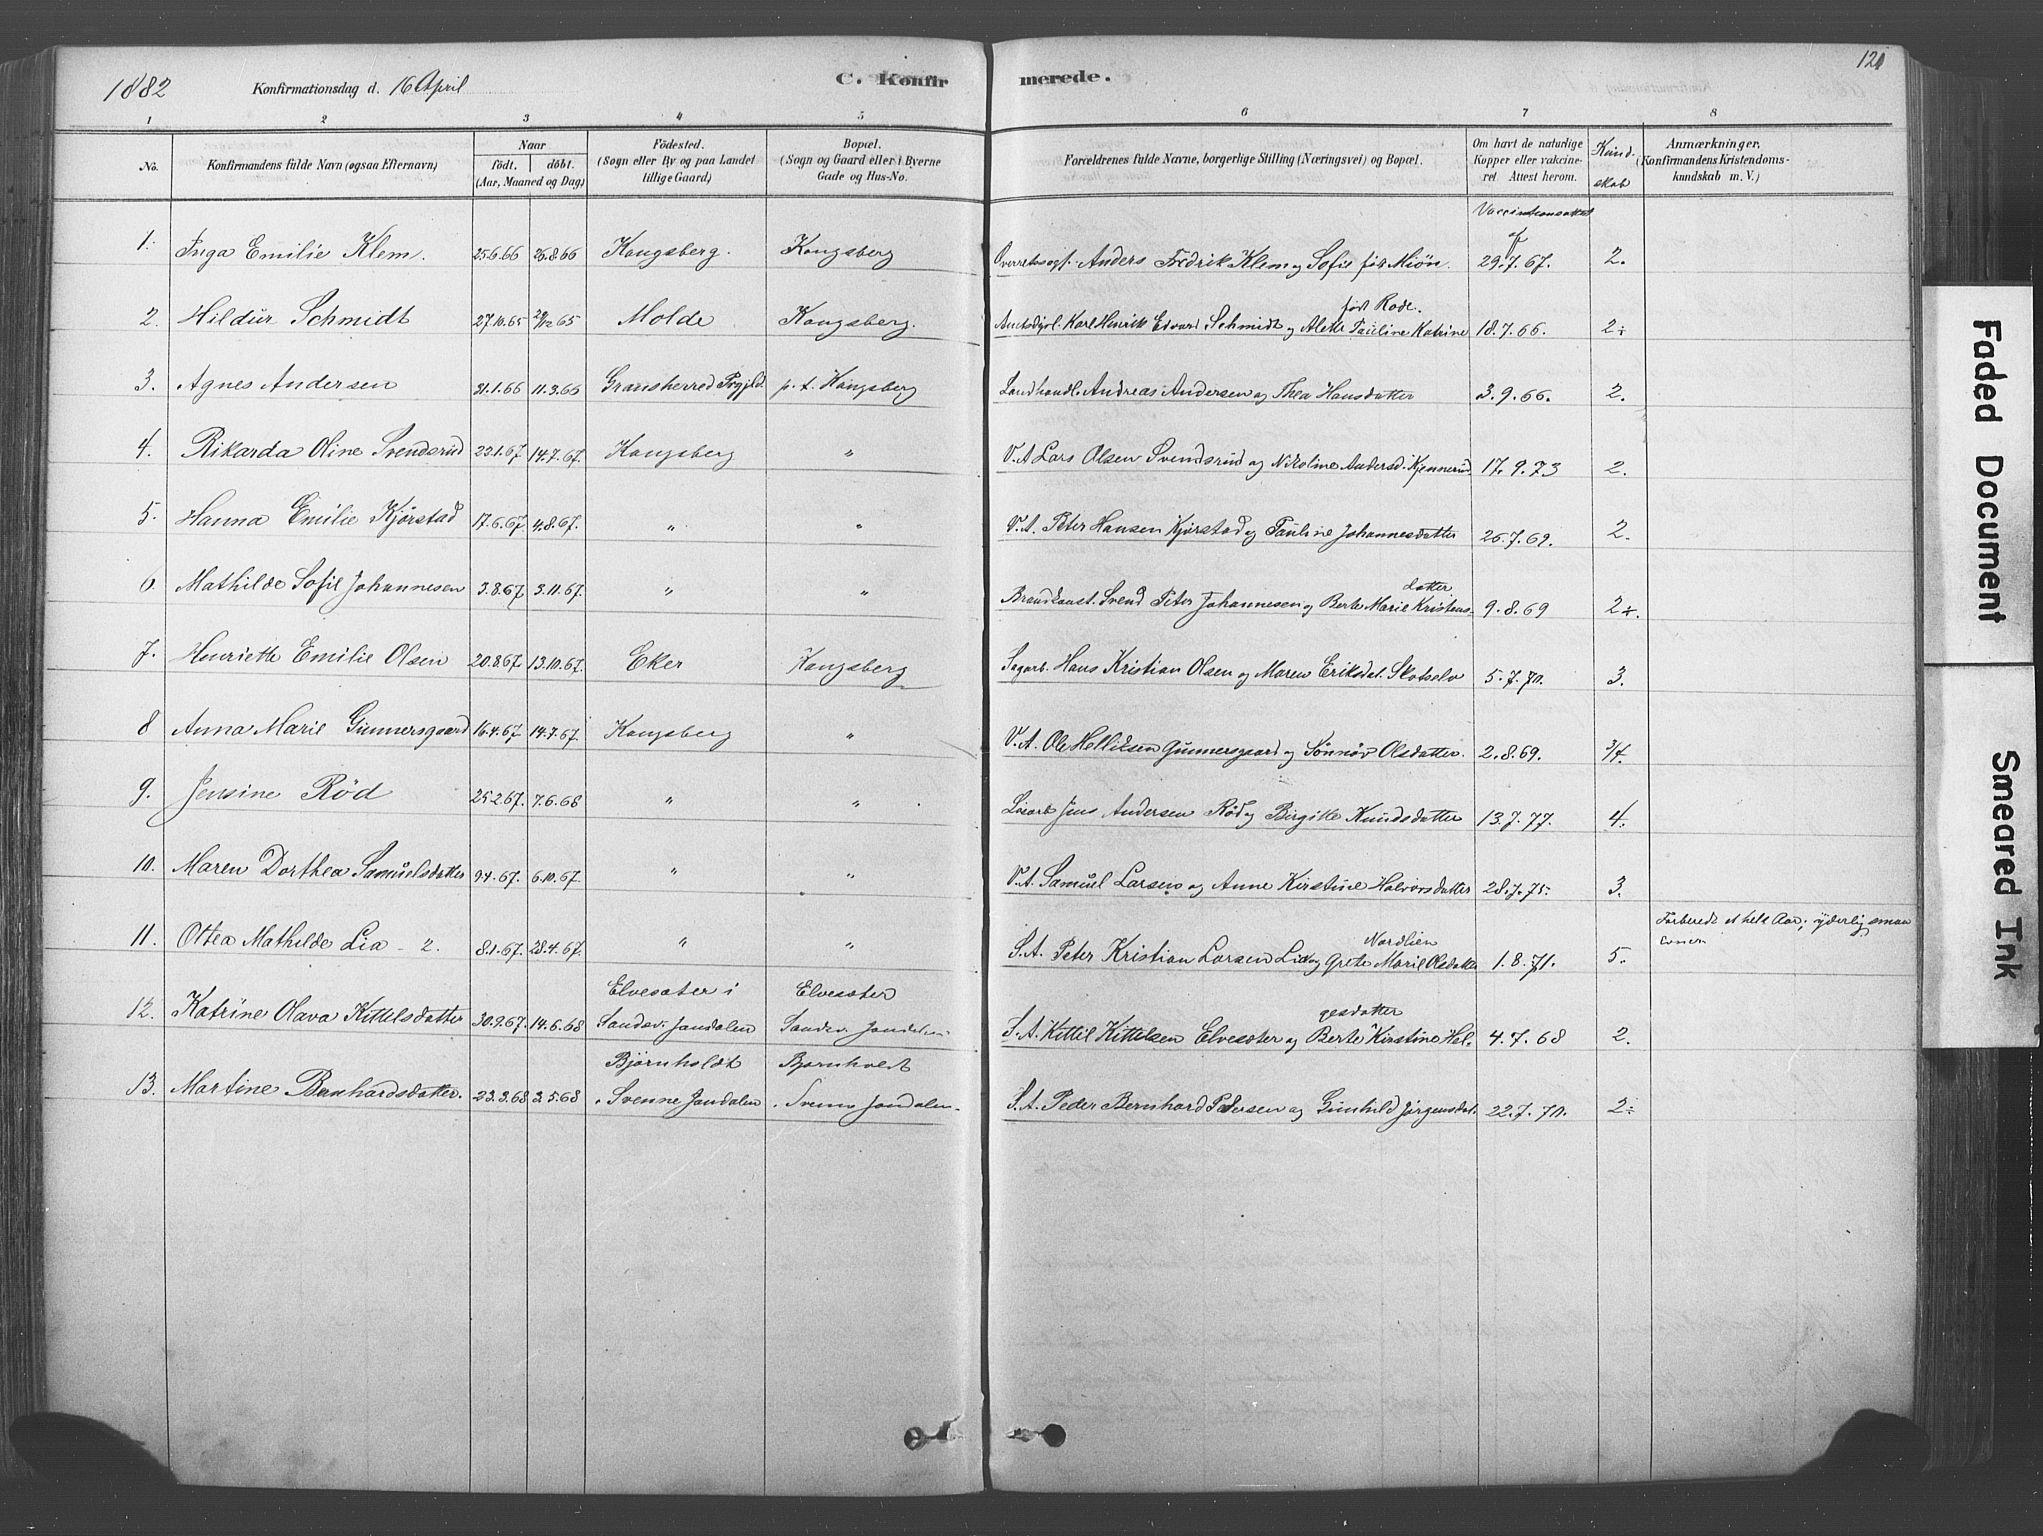 1882 Konfirmationsdag d. 16 April C. Konfir merede. 121
1 2 3 4 5 6 7 8
No. Konfirmandens fulde Navn (ogsaa Efternavn) Naar født. døbt. (Aar, Maaned og Dag) Fødested. (Sogn eller By og paa Landet tillige Gaard) Bopæl. (Sogn og Gaard eller i Byerne Gade og Hus-No. Forældrenes fulde Navne, borgerlige Stilling (Næringsvei) og Bopæl. Om havt de naturlige Kopper eller vakcineret Attest herom. Kundskab Anmærkninger, (Konfirmandens Kristendomskundskab m. V.)
Vaccinationsattest af
1. Inga Emilie Klem. 25.6.66 26.8.66 Kongsberg. Kongsberg Overretssagf. Anders Fredrik Klem og Sofie fød Miøn. 29.7.67. 2.
født Rode.
2. Hildur Schmidt 27.10.65 29/12 65 Molde Kongsberg. Karl Henrik Edvard Schmidt og Alette Pauline Katrine 18.7.66. 2÷
3. Agnes Andersen 31.1.66 11.3.66 Gransherred Prgjld. p.t. Kongsberg Landhandl. Andreas Andersen og Thea Hansdatter 3.9.66. 2.
4. Rikarda Oline Svendsrud 22.1.67. 14.7.67. Kongsberg " V.A. Lars Olsen Svendsrud og Nikoline Andersd. Kjennerud 17.9.73 2.
5. Hanna Emilie Kjørstad 17.6.67. 4.8.67. " " V.A. Peter Hansen Kjørstad og Pauline Johannesdatter 26.7.69. 2.
datter
6 Mathilde Sofie Johannesen 3.8.67. 3.11.67. " " Brandkonst. Svend Peter Johannesen og Berte Marie Kristens- 9.8.69 2÷.
7. Henriette Emilie Olsen 20.8.67. 13.10.67. Eker Kongsberg Sagarb. Hans Kristian Olsen og Maren Eriksdat. Skotselv 5.7.70. 3.
8 Anna Marie Gunnersgaard 16.4.67. 14.7.67. Kongsberg " V.A. Ole Helliksen Gunnersgaard og Sønnøv Olsdatter. 2.8.69. 3/4.
9. Jensine Rød 25.2.67. 7.6.68 " " Løsarb. Jens Andersen Rød og Birgitte Knudsdatter 13.7.77. 4.
10. Maren Dorthea Samuelsdatter 9.4.67. 6.10.67. " " V.A. Samuel Larsen og Anne Kirstine Halvorsdatter 28.7.75. 3.
Forberedt et helt Aar; yderlig smaa
Nordlien
11. Ottea Mathilde Lia - 2. 8.1.67. 28.4.67. " " S.A. Peter Kristian Larsen Lia og Grete Marie Olsdatter 1.8.71. 5.
Elvesæter i Elvesæter gesdatter
12. Katrine Olava Kittelsdatter 30.9.67. 14.6.68 Sandsv. Jondalen Sandsv. Jondalen S.A. Kittil Kittelsen Elvesæter og Berte Kirstine Hel- 4.7.68 2.
Bjørnholdt Bjornholdt
13. Martine Bernhardsdatter. 23.3.68 3.5.68 Svenne Jondalen Svenne Jondalen. S.A. Peder Bernhard Pedersen og Gunhild Jørgensdat. 22.7.70. 2÷
Faded Document
Smeared Ink